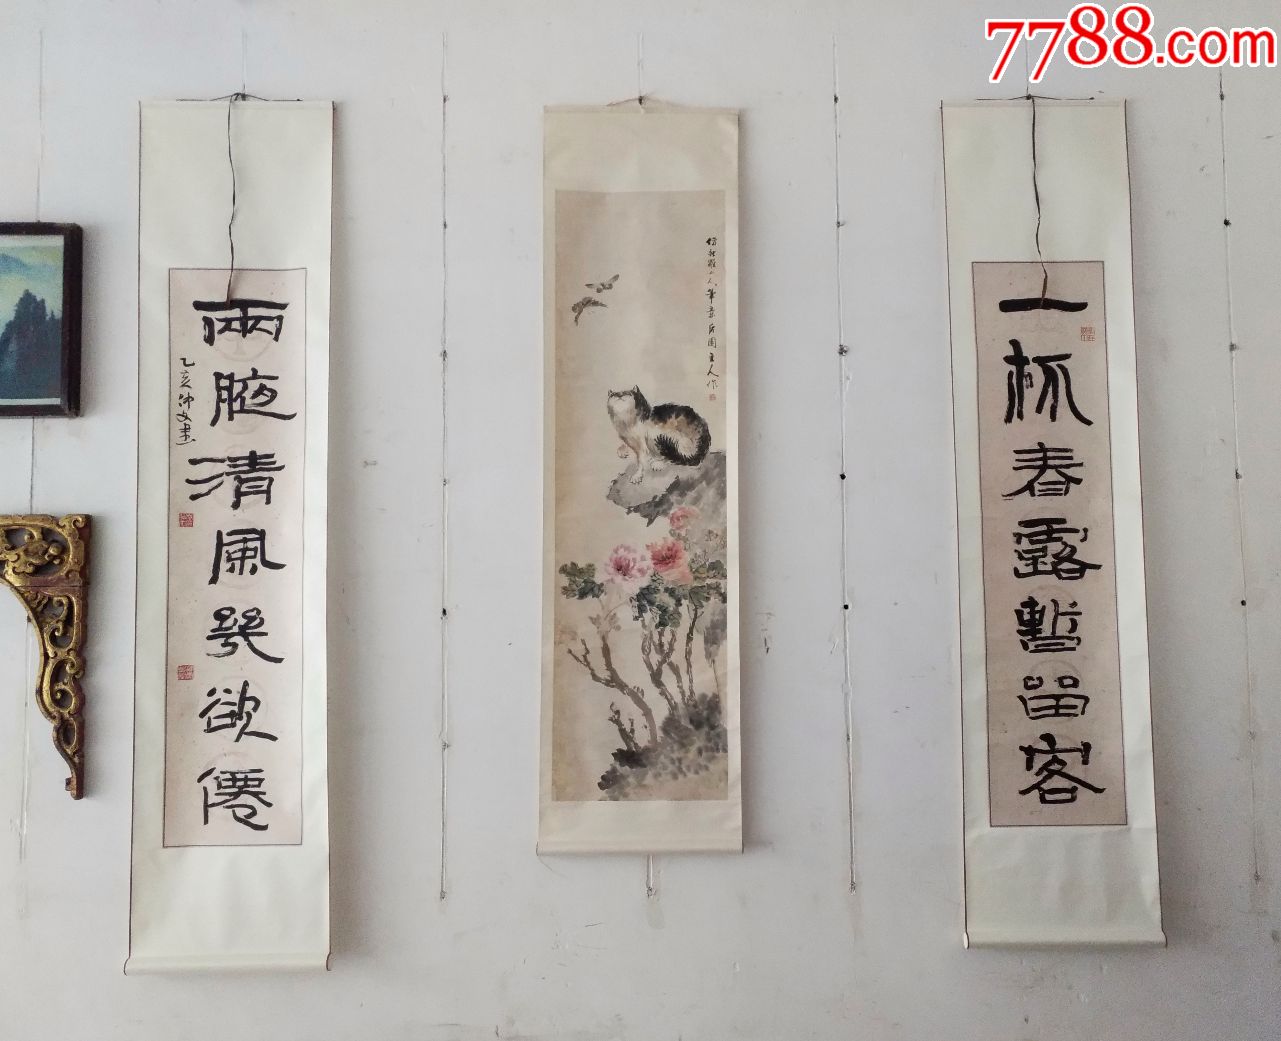 7788.com
一杯春露暫留客
兩腋清風幾欲僊
乙亥仲文書